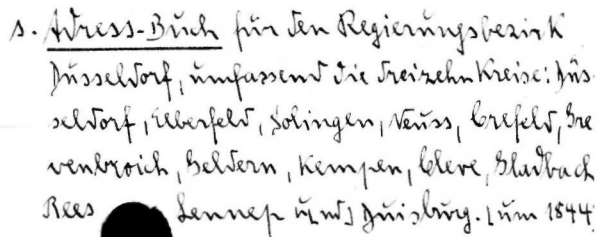 s. Adress-Buch für den Regierungsbezirk
Düsseldorf, umfassend die dreizehn Kreise: Düs-
seldorf, Elberfeld, Solingen, Neuss, Crefeld, Gre
venbroich, Geldern, Kempen, Cleve, Gladbach
Rees Lennep u[nd] Duisburg. [um 1844